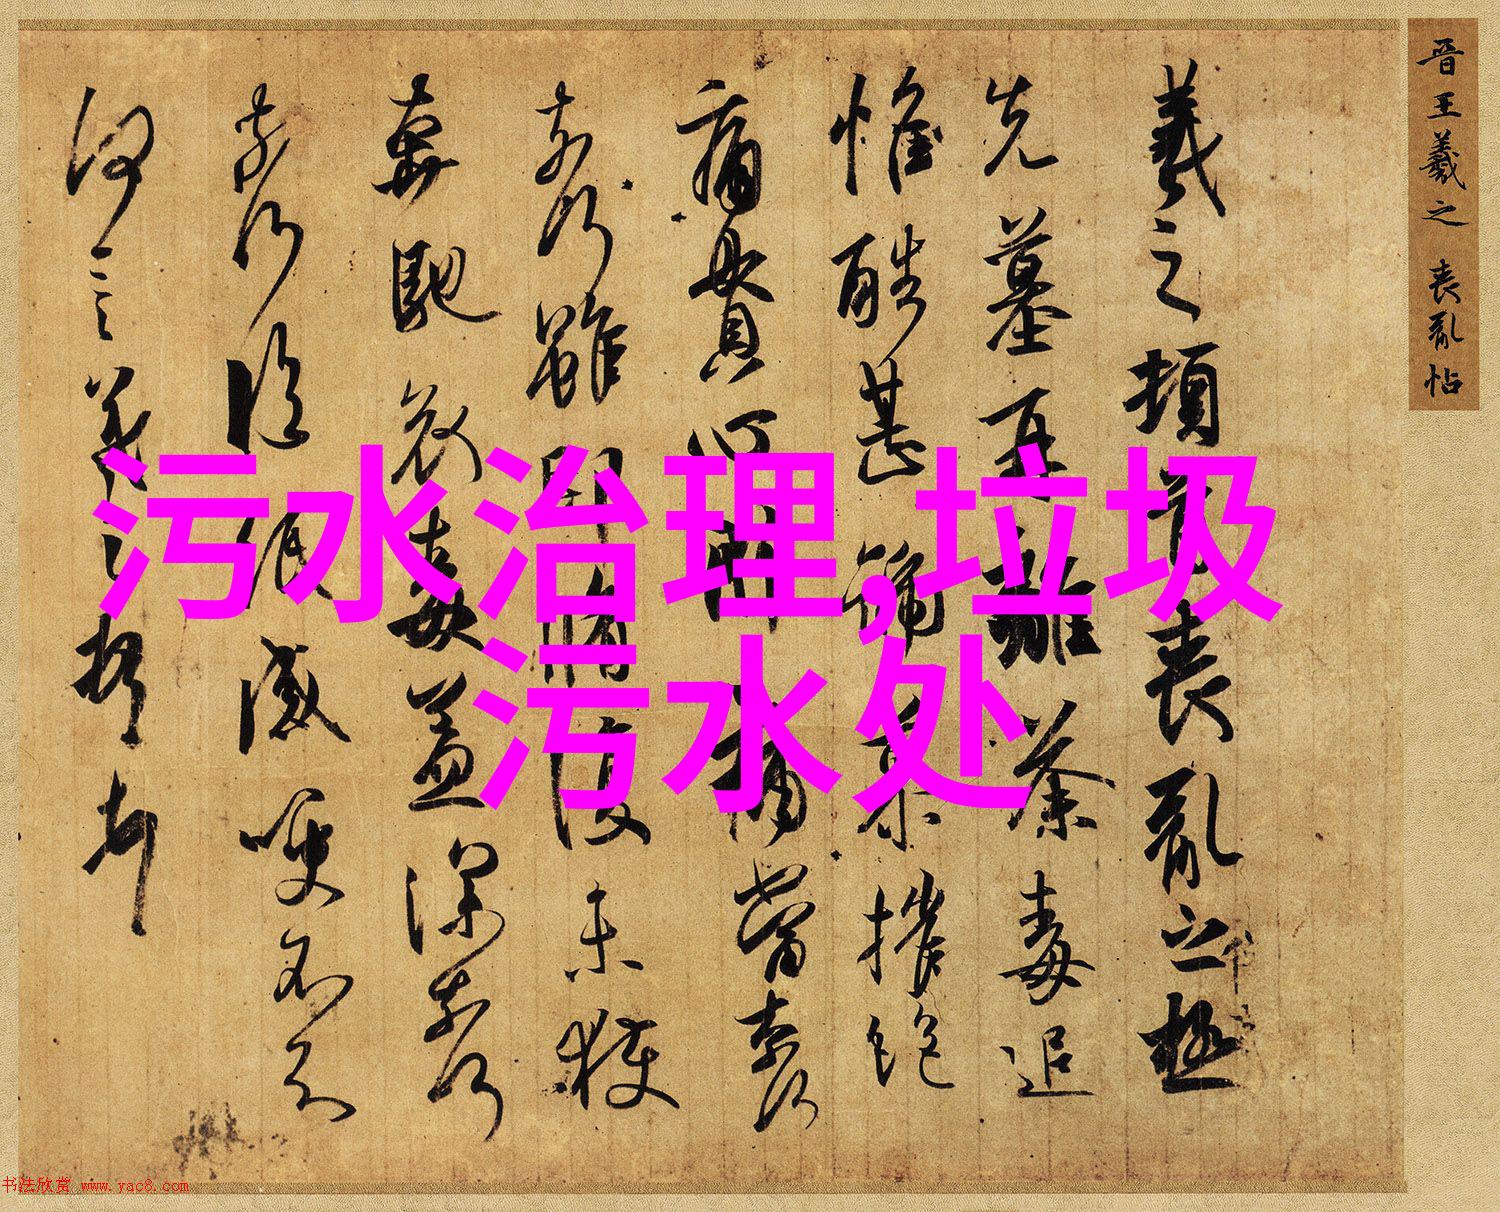 晋王羲之 丧乱帖
羲之顿首丧乱之极
先墓再離荼毒追
惟酷甚號慕摧絶
痛貫心肝痛當奈何
奈何雖即脩復未獲
奔馳哀毒益深奈何
奈何臨紙感哽不知
何言羲之頓首
污水治理,垃圾
污水处
书法欣赏 www.yac8.com